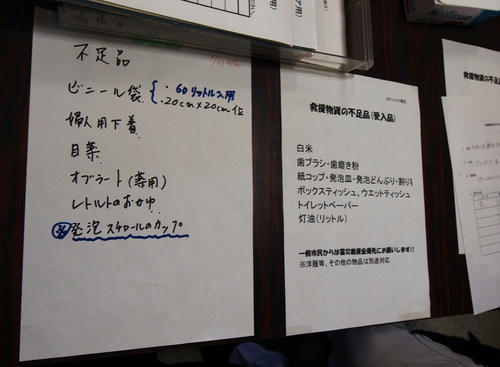 不足品
ビニール袋 { ・60リットル入用
・20cm×20cm位
婦人用下着
目薬
オブラート(薬用)
レトルトのおかゆ
発泡スチロールのカップ
救援物資の不足品(受入品)
白米
歯ブラシ・歯磨き粉
紙コップ・発泡皿・発泡どんぶり・割り
ボックスティッシュ、ウエットティッシュ
トイレットペーパー
灯油(リットル)
一般市民からは震災義援金優先にお願いします!!
※洋服等、その他の物品は別途対応
救援物資の不